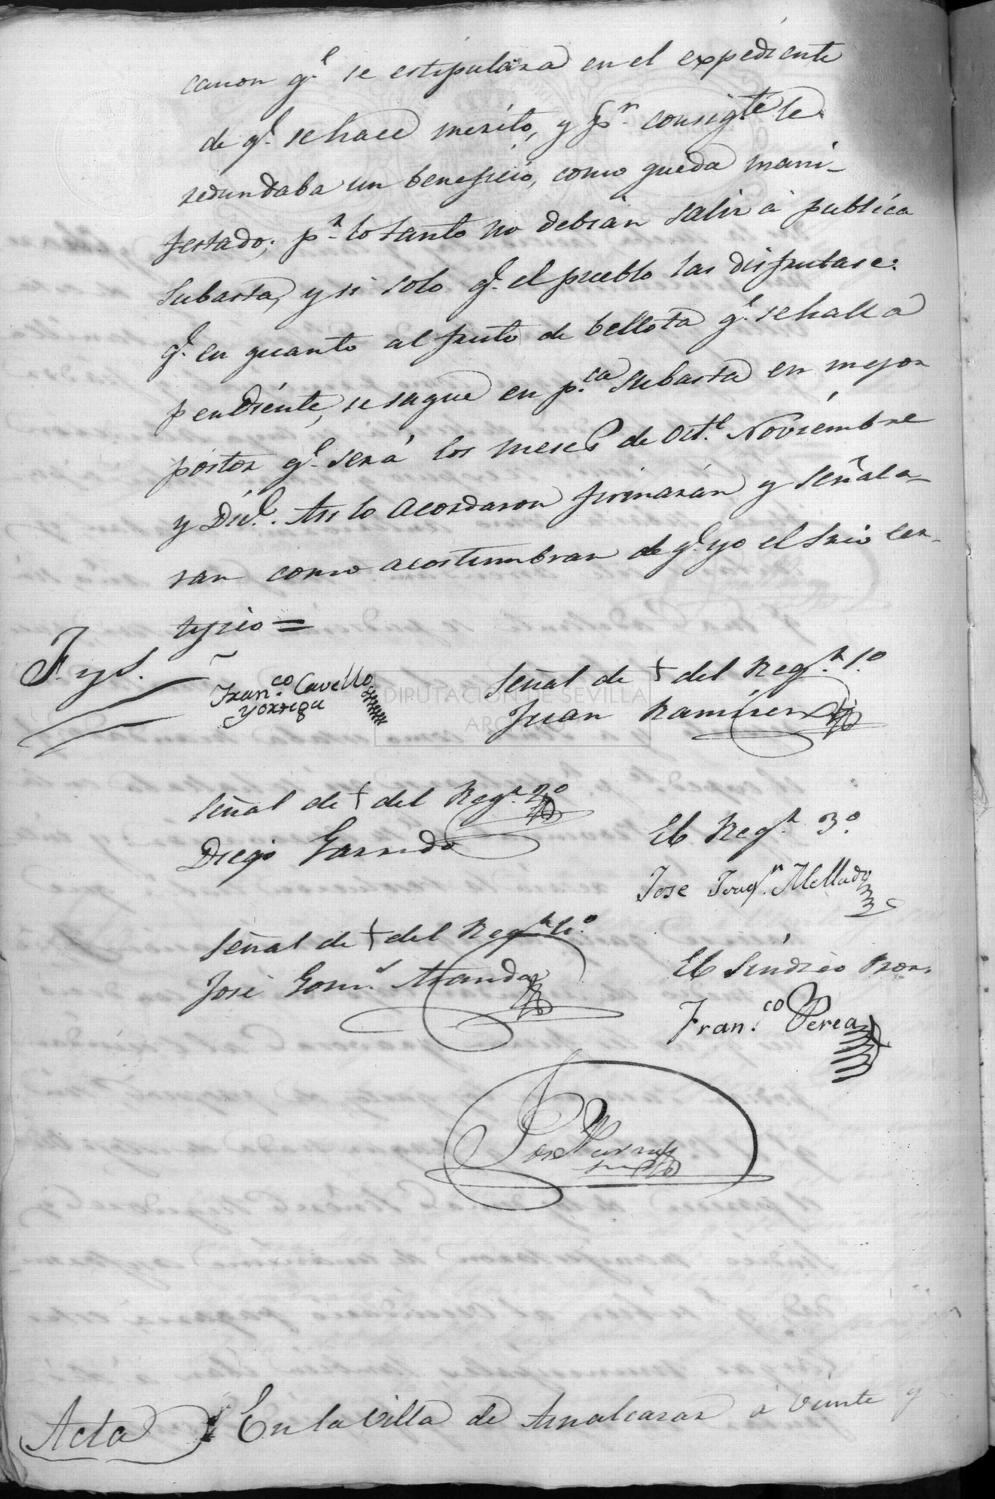 canon q.e se estipulara en el expediente
de q.e se hace merito, y p.r consigte le
redundaba un beneficio, como queda mani-
festado; p.r lo tanto no debian salir á publica
subasta, y si solo q.e el pueblo las disfrutase:
q.e en quanto al fruto de bellota q.e se halla
pendiente, se saque en p.ca subasta en mejor
postor q.e será los meses de Oct.e Noviémbre
y Dic.e. Asi lo acordaron firmarán y señala-
ran como acostumbran de q.e yo el Srio cer-
tifico =
F. y S.
Fran.co Cavello
y Orrega
Señal de + del Reg.r 1.o
Juan Ramirez
DIPUTACIÓN DE SEVILLA
ARCHIVO
Señal de + del Reg.r 2.o
Diego Garrido
El Reg.r 3.o
Jose Joaq.n Mellado
Señal de + del Reg.r 4.o
José Gom.s Aranda
El Sindico Pror.
Fran.co Perea
Jose
Acta En la Villa de Aznalcazar á veinte y